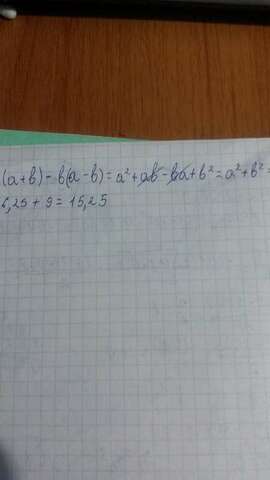 (a+b)-b(a-b)=a²+ab-ba+b²=a²+b²=
6,25+9=15,25